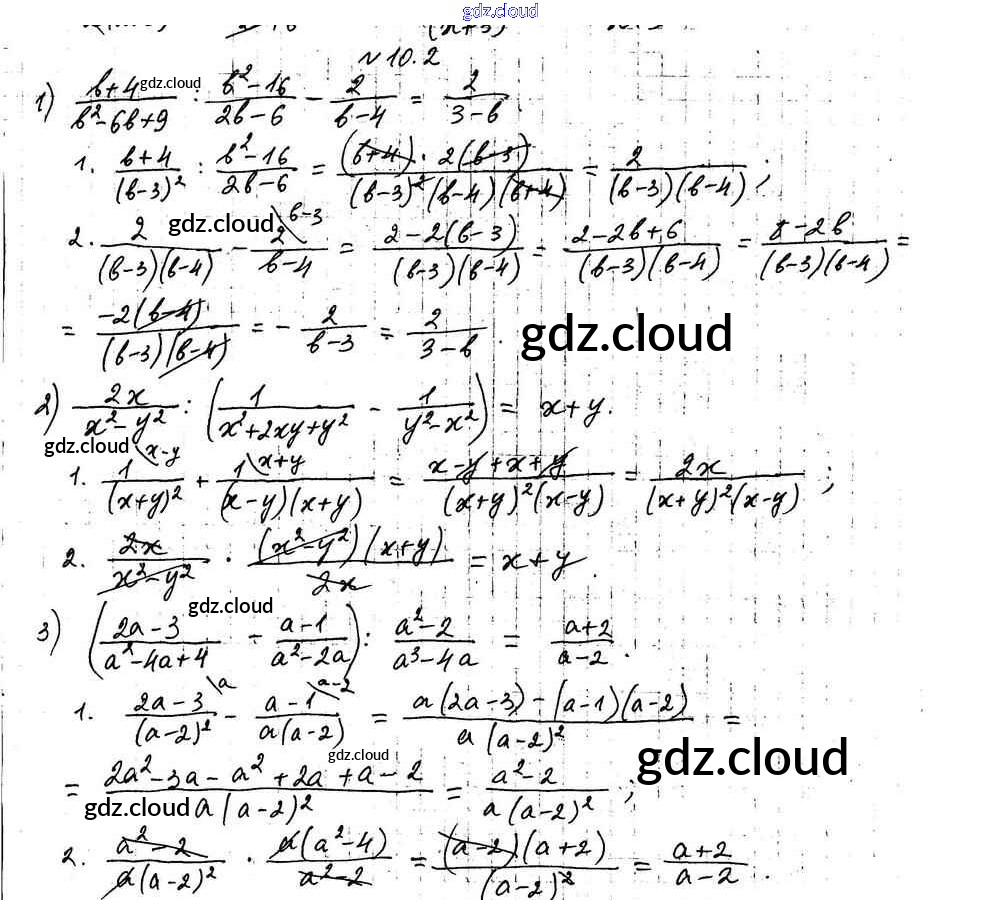 gdz.cloud
№10.2
1) (b+4)/(b²-6b+9) : (b²-16)/(2b-6) - 2/(b-4) = 2/(3-b).
gdz.cloud
1. (b+4)/(b-3)² : (b²-16)/(2b-6) = ((b+4)·2(b-3))/((b-3)²(b-4)(b+4)) = 2/((b-3)(b-4));
2. 2/((b-3)(b-4)) - 2\b-3/(b-4) = (2-2(b-3))/((b-3)(b-4)) = (2-2b+6)/((b-3)(b-4)) = (8-2b)/((b-3)(b-4)) =
gdz.cloud
= (-2(b-4))/((b-3)(b-4)) = - 2/(b-3) = 2/(3-b).
gdz.cloud
2) 2x/(x²-y²) : (1/(x²+2xy+y²) - 1/(y²-x²)) = x+y.
gdz.cloud
1. 1\x-y/(x+y)² + 1\x+y/((x-y)(x+y)) = (x-y+x+y)/((x+y)²(x-y)) = 2x/((x+y)²(x-y));
2. 2x/(x²-y²) · ((x²-y²)(x+y))/2x = x+y.
gdz.cloud
3) ((2a-3)/(a²-4a+4) - (a-1)/(a²-2a)) : (a²-2)/(a³-4a) = (a+2)/(a-2).
1. (2a-3)\a/(a-2)² - (a-1)\a-2/(a(a-2)) = (a(2a-3)-(a-1)(a-2))/(a(a-2)²) =
gdz.cloud
gdz.cloud
= (2a²-3a-a²+2a+a-2)/(a(a-2)²) = (a²-2)/(a(a-2)²);
gdz.cloud
2. (a²-2)/(a(a-2)²) · (a(a²-4))/(a²-2) = ((a-2)(a+2))/(a-2)² = (a+2)/(a-2).